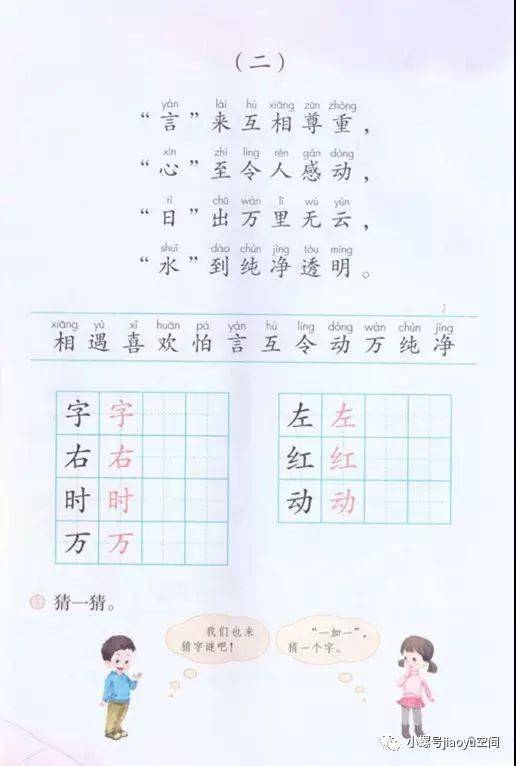 （二）
yán lái hù xiāng zūn zhòng
“言”来互相尊重，
xīn zhì lìng rén gǎn dòng
“心”至令人感动，
rì chū wàn lǐ wú yún
“日”出万里无云，
shuǐ dào chún jìng tòu míng
“水”到纯净透明。
xiāng yù xǐ huān pà yán hù lìng dòng wàn chún jìng
相遇喜欢怕言互令动万纯净
字字 左左
右右 红红
时时 动动
万万
猜一猜。
我们也来
猜字谜吧！
“一加一”，
猜一个字。
小螺号jiaoyu空间